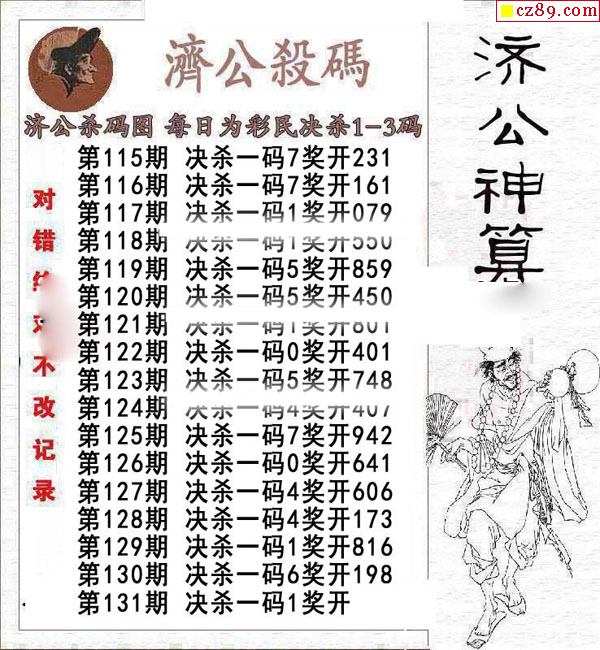 cz89.com
濟公殺碼
济公杀码图 每日为彩民决杀1-3码
第115期 决杀一码7奖开231
第116期 决杀一码7奖开161
第117期 决杀一码1奖开079
第118期 决杀一码1奖开550
第119期 决杀一码5奖开859
第120期 决杀一码5奖开450
第121期 决杀一码1奖开801
第122期 决杀一码0奖开401
第123期 决杀一码5奖开748
第124期 决杀一码4奖开407
第125期 决杀一码7奖开942
第126期 决杀一码0奖开641
第127期 决杀一码4奖开606
第128期 决杀一码4奖开173
第129期 决杀一码1奖开816
第130期 决杀一码6奖开198
第131期 决杀一码1奖开
对错对不改记录
济公神算